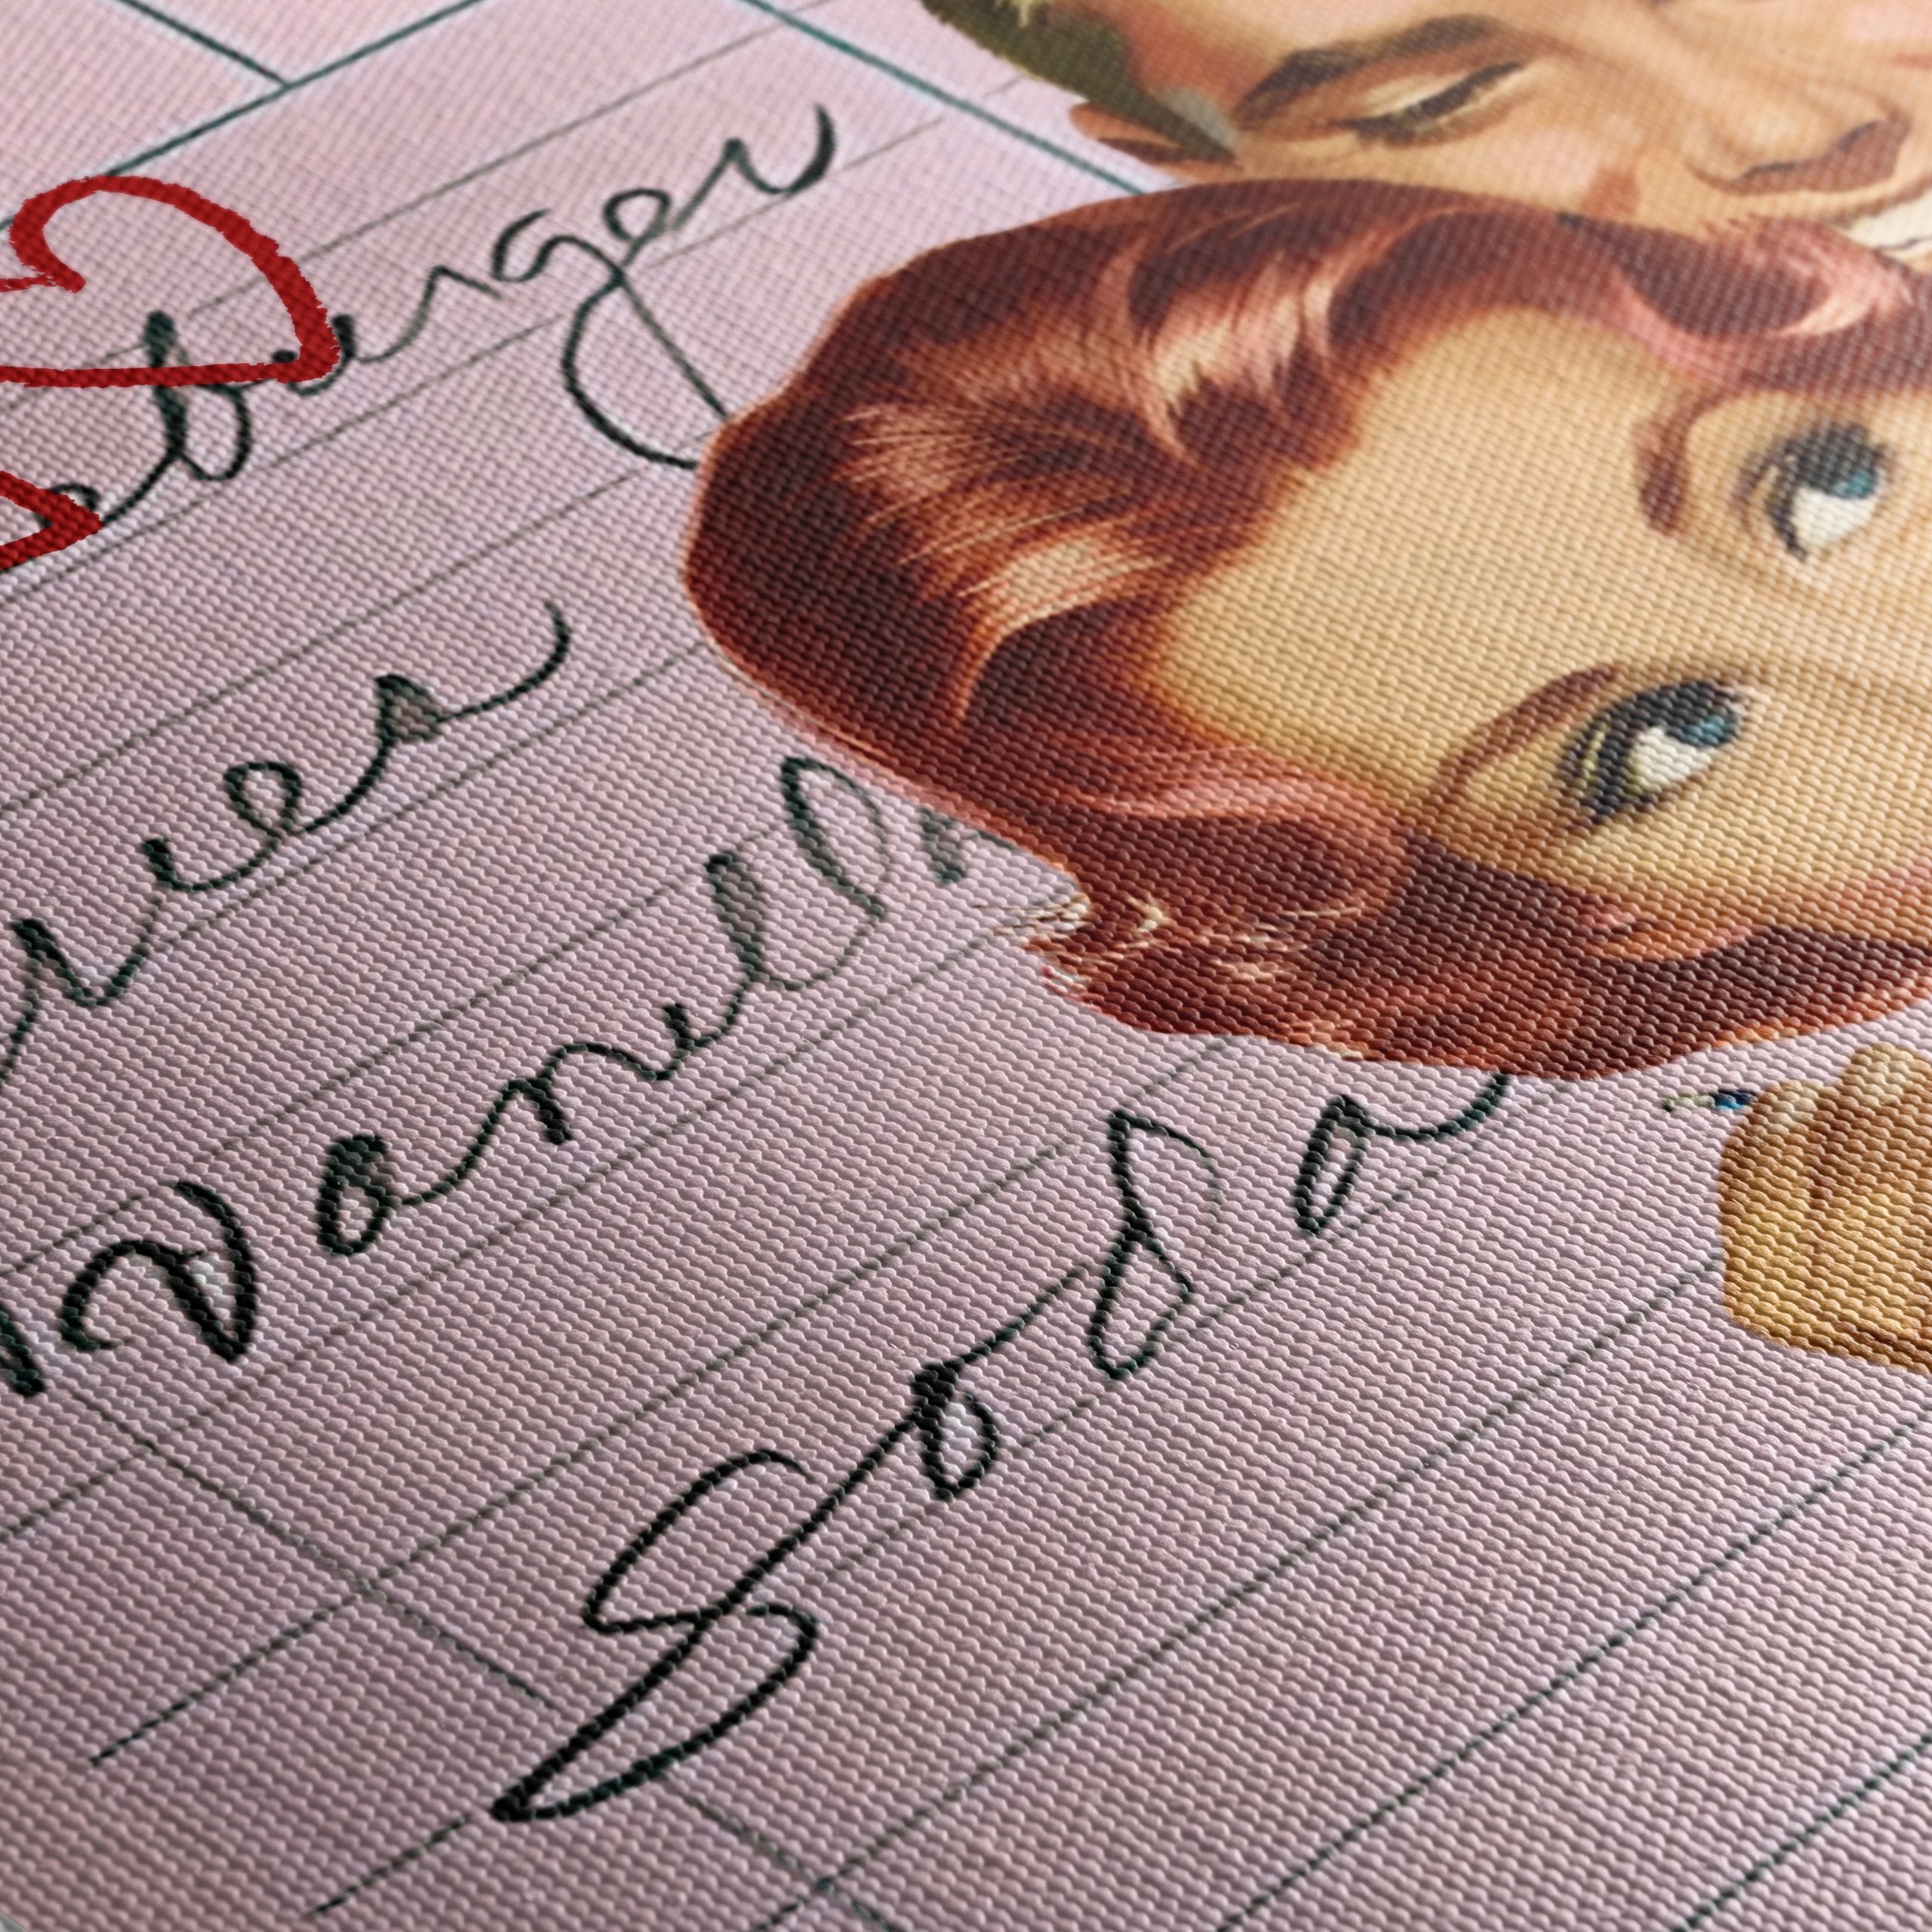 eburger
ries
vanill
Soda